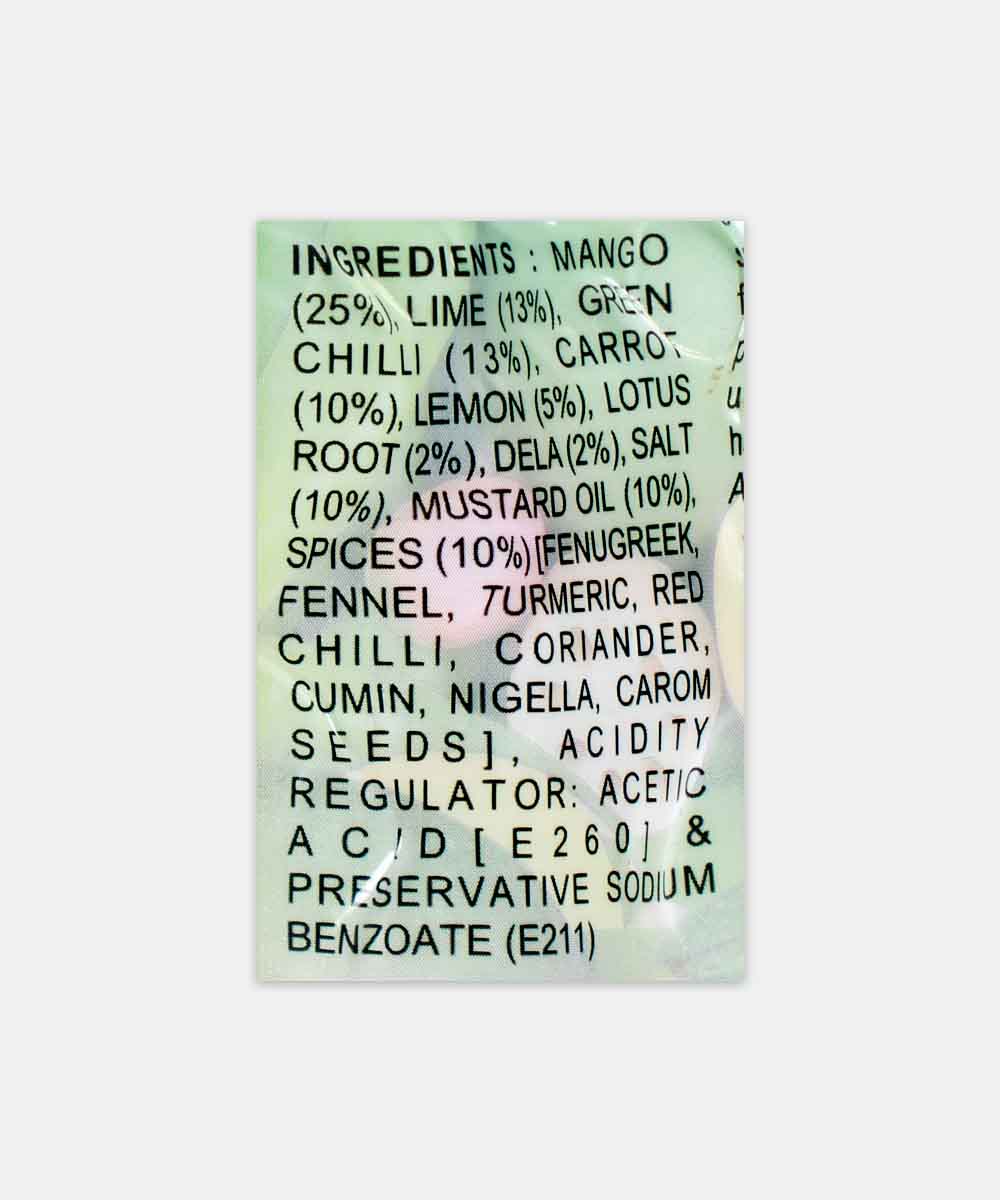 INGREDIENTS : MANGO
(25%), LIME (13%), GREEN
CHILLI (13%), CARROT
(10%), LEMON (5%), LOTUS
ROOT (2%), DELA (2%), SALT
(10%), MUSTARD OIL (10%),
SPICES (10%) [FENUGREEK,
FENNEL, TURMERIC, RED
CHILLI, CORIANDER,
CUMIN, NIGELLA, CAROM
SEEDS], ACIDITY
REGULATOR: ACETIC
ACID [E260] &
PRESERVATIVE SODIUM
BENZOATE (E211)